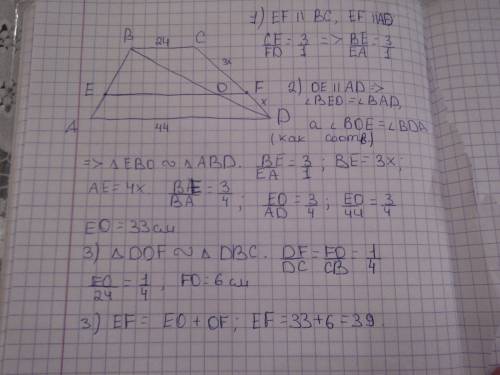 1) EF || BC, EF || AD
CF/FD = 3/1 => BE/EA = 3/1
B 24 C
3x
E O F
x
A 44 D
2) OE || AD =>
∠BEO = ∠BAD,
а ∠BOE = ∠BDA
(как соотв)
=> △EBO ∾ △ABD. BE/EA = 3/1; BE = 3x;
AE = 4x BE/BA = 3/4; EO/AD = 3/4; EO/44 = 3/4
EO = 33 см
3) △DOF ∾ △DBC. DF/DC = FO/CB = 1/4
FO/24 = 1/4, FO = 6 см
3) EF = EO + OF; EF = 33 + 6 = 39.